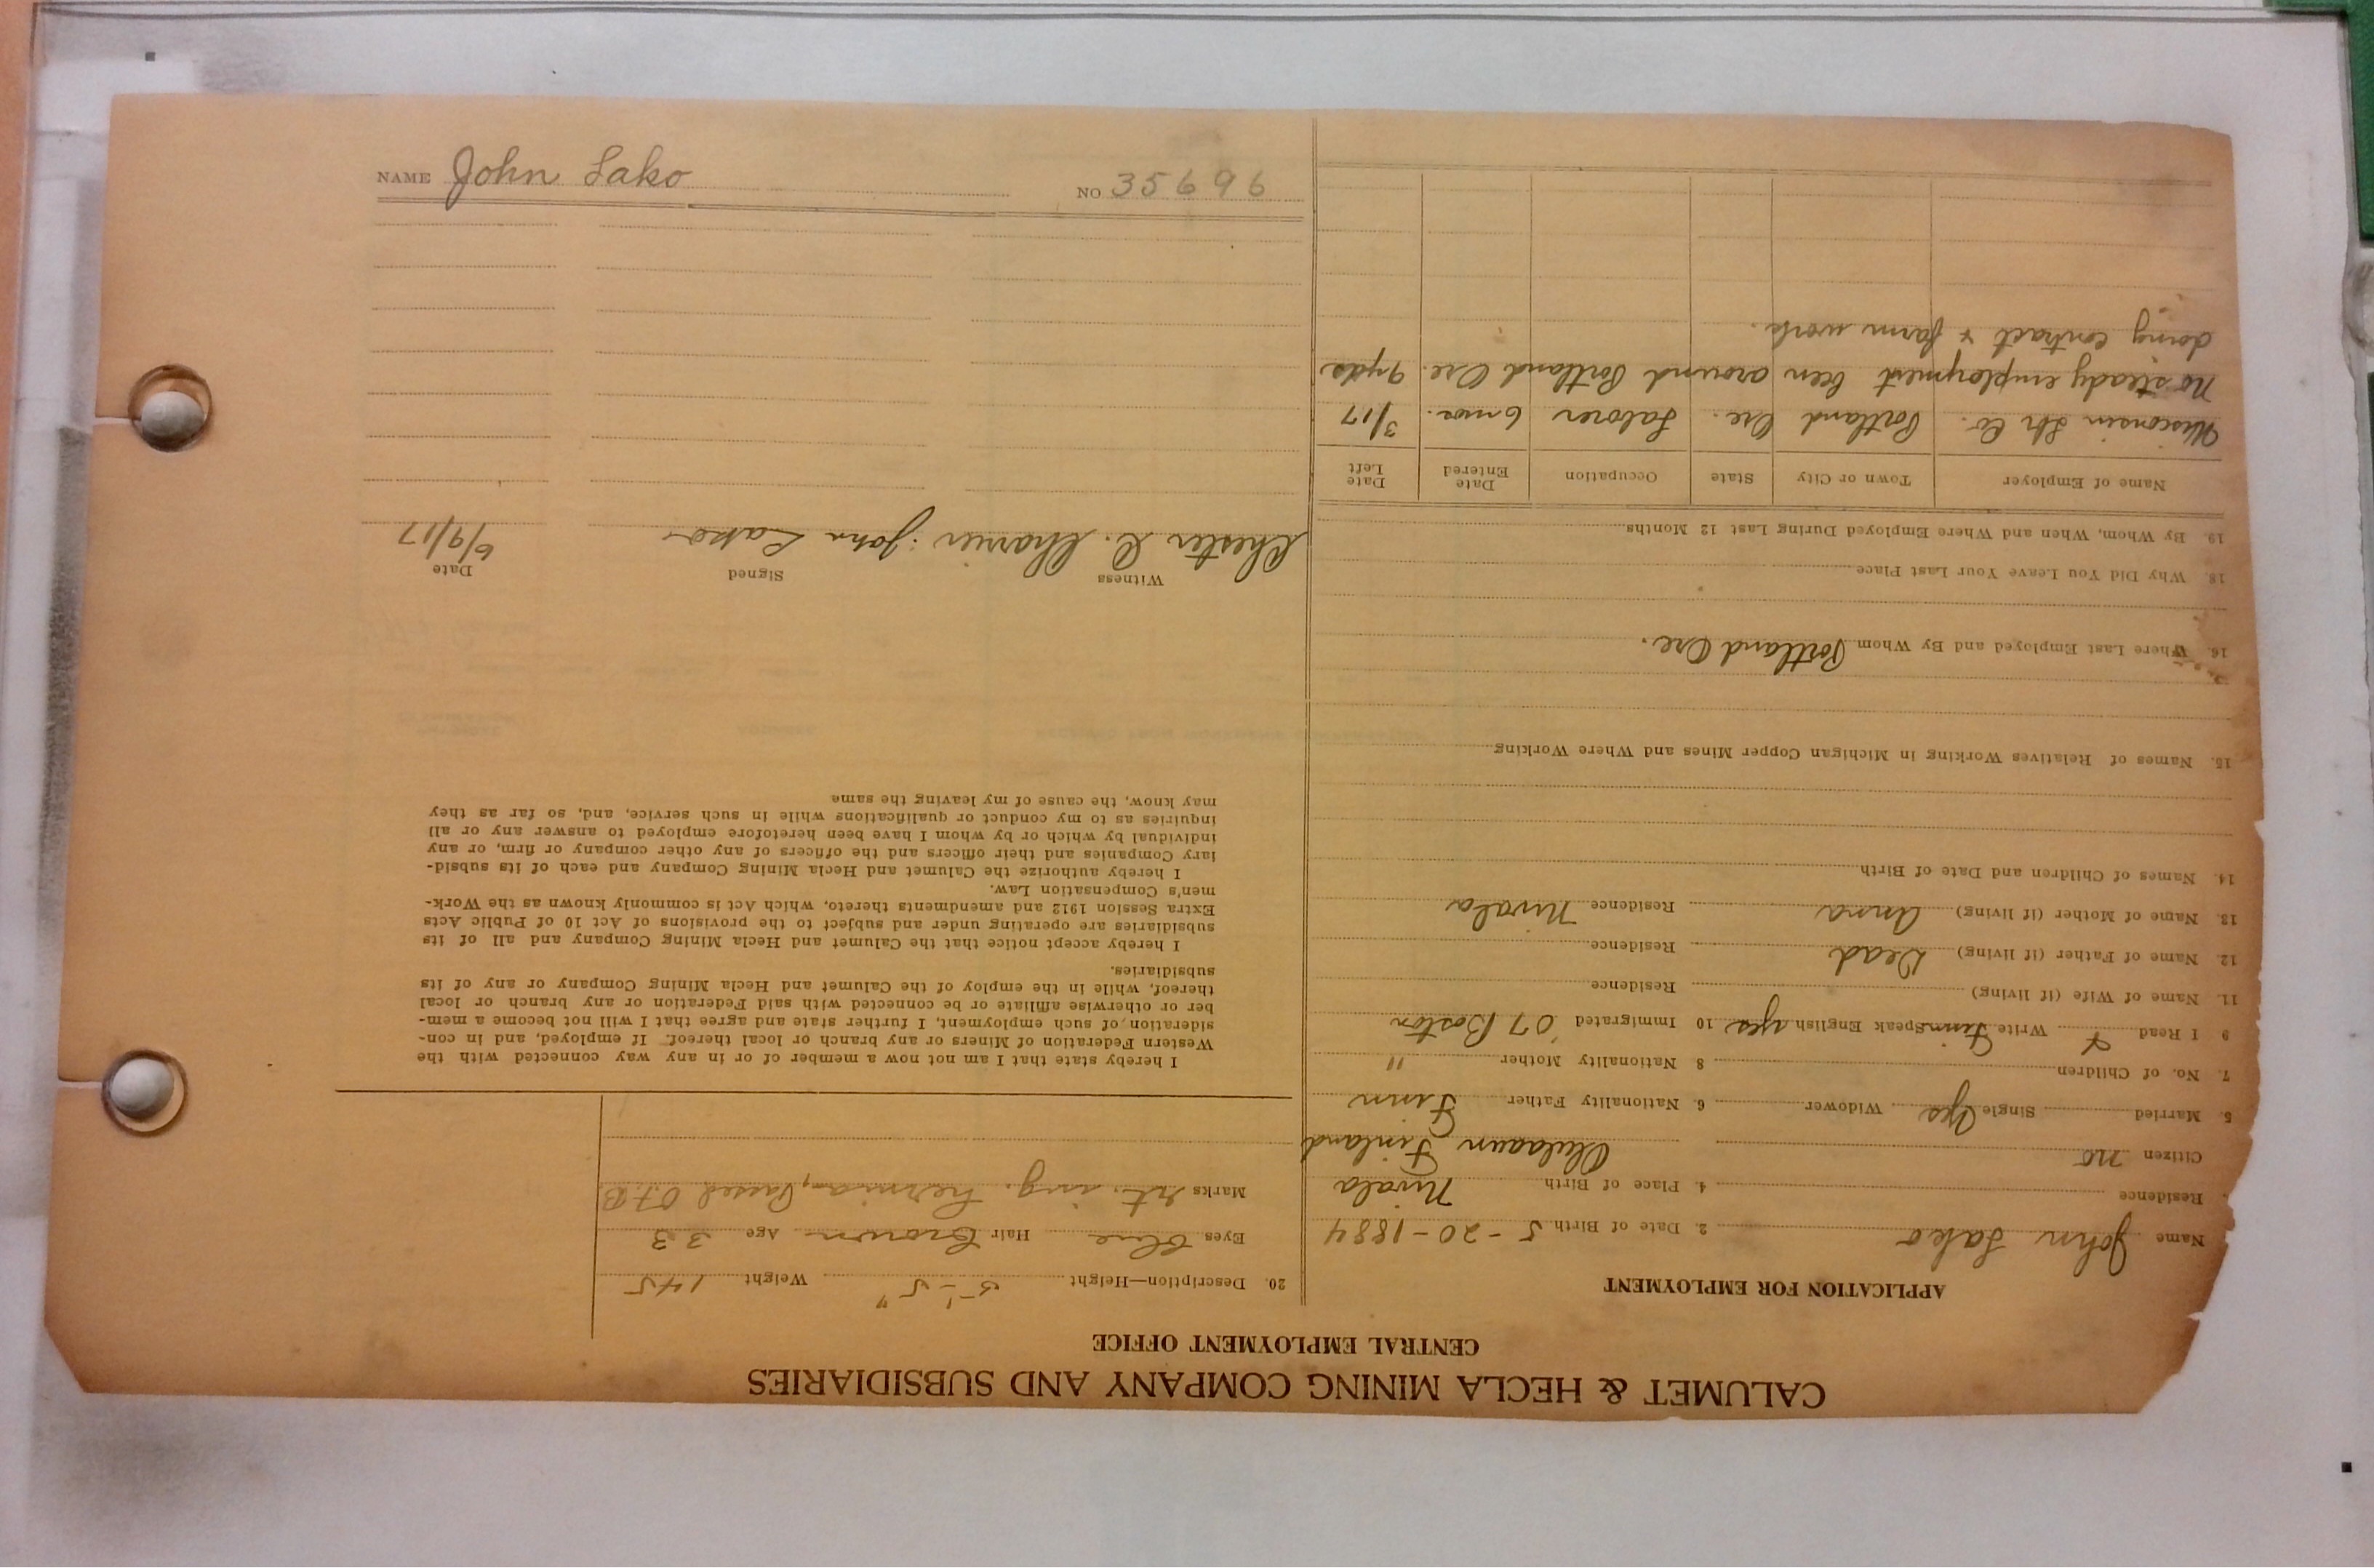 CALUMET & HECLA MINING COMPANY AND SUBSIDIARIES
CENTRAL EMPLOYMENT OFFICE
APPLICATION FOR EMPLOYMENT
Name John Lako 2. Date of Birth 5-20-1884
Residence 4. Place of Birth Nivala
Citizen no Finland
5. Married Single Yes Widower 6. Nationality Father Finn
7. No. of Children 8 Nationality Mother "
9 I Read Write Finn Speak English yes 10 Immigrated '07 Boston
11. Name of Wife (if living) Residence
12. Name of Father (if living) Dead Residence
13. Name of Mother (if living) Anna Residence Nivala
14. Names of Children and Date of Birth
15. Names of Relatives Working in Michigan Copper Mines and Where Working
16. Where Last Employed and By Whom Portland Ore.
18. Why Did You Leave Your Last Place
19. By Whom, When and Where Employed During Last 12 Months
Name of Employer Town or City State Occupation Date Entered Date Left
Wisconsin Lbr Co. Portland Ore. Laborer 6 mos. 3/17
No steady employment been around Portland Ore. 9 yds
doing contract & farm work.
20. Description—Height 5'-5" Weight 145
Eyes blue Hair Brown Age 33
Marks rt. ing. hernia, Passed O.K.
I hereby state that I am not now a member of or in any way connected with the
Western Federation of Miners or any branch or local thereof. If employed, and in con-
sideration of such employment, I further state and agree that I will not become a mem-
ber or otherwise affiliate or be connected with said Federation or any branch or local
thereof, while in the employ of the Calumet and Hecla Mining Company or any of its
subsidiaries.
I hereby accept notice that the Calumet and Hecla Mining Company and all of its
subsidiaries are operating under and subject to the provisions of Act 10 of Public Acts
Extra Session 1912 and amendments thereto, which Act is commonly known as the Work-
men's Compensation Law.
I hereby authorize the Calumet and Hecla Mining Company and each of its subsid-
iary Companies and their officers and the officers of any other company or firm, or any
individual by which or by whom I have been heretofore employed to answer any or all
inquiries as to my conduct or qualifications while in such service, and, so far as they
may know, the cause of my leaving the same
Witness Signed Date
Chester C. John Lako 6/9/17
NAME John Lako NO 35696